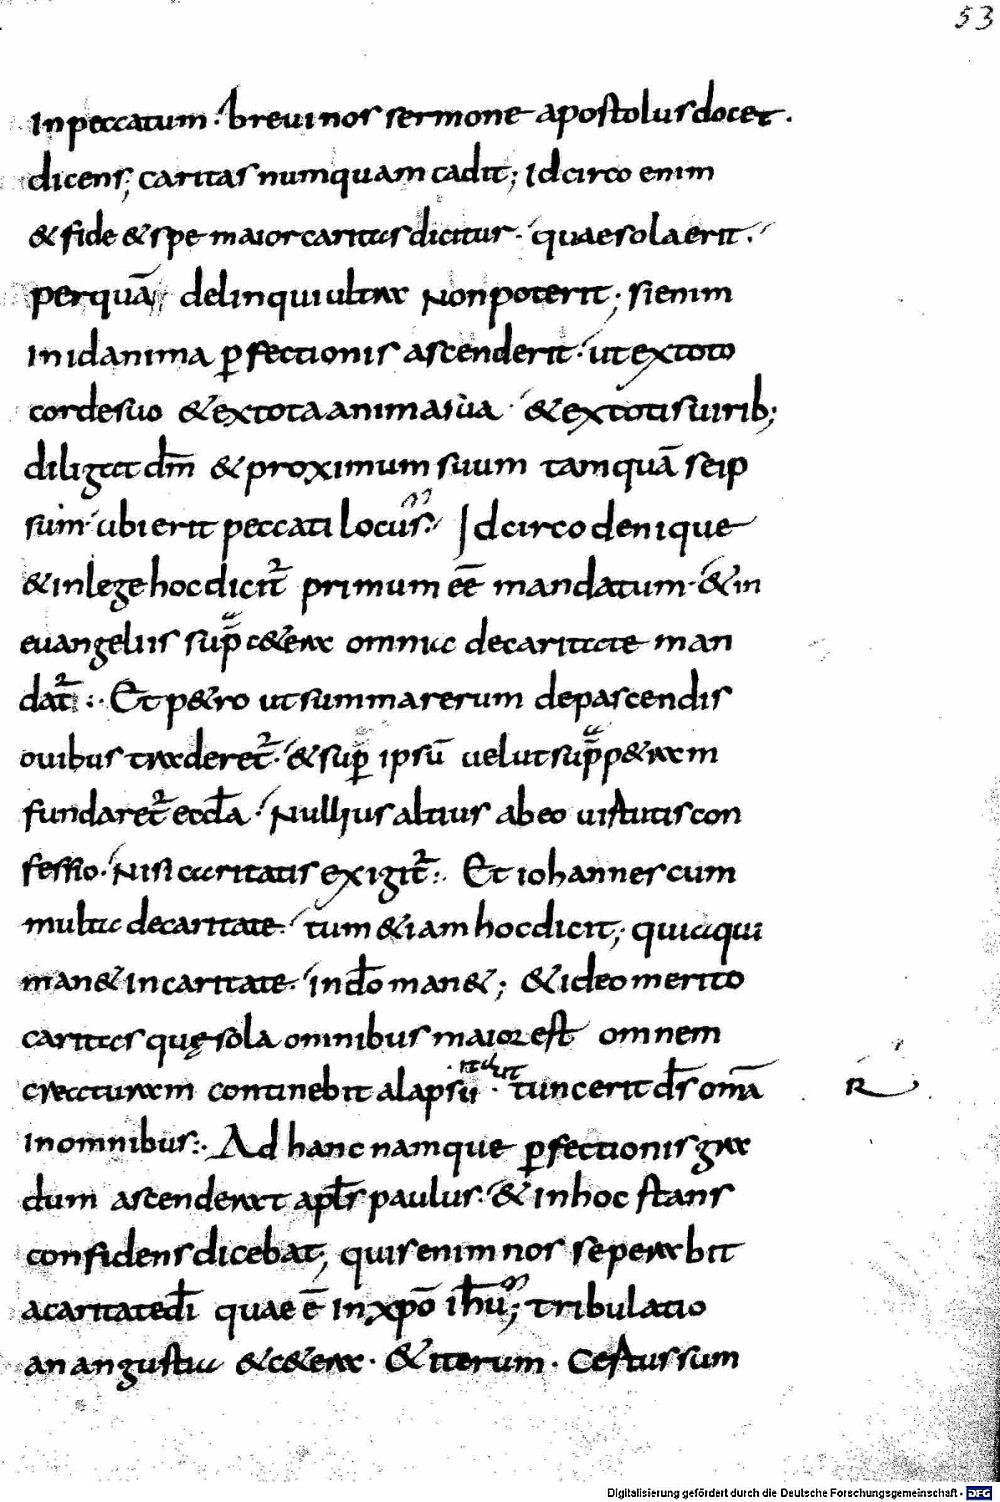 53
in peccatum · breui nos sermone apostolus docet .
dicens; caritas numquam cadit; Idcirco enim
& fide & spe maior caritas dicitur · quae sola erit .
per quā delinqui ultra non poterit; si enim
in id anima ꝑfectionis ascenderit · ut ex toto
corde suo & ex tota anima sua · & ex totis uirib;
diligat dm̄ & proximum suum tamquā seip
sum · ubi erit peccati locus · Idcirco denique
& in lege hoc dicit᷑ primum eē mandatum · & in
euangeliis sup̄ c&era omnia de caritate man
dat᷑ :· Et p&ro ut summa rerum de pascendis
ouibus traderet᷑ · & suꝑ ipsū uelut sup̄ p&ram
fundaret᷑ eccła · Nullius alius ab eo uirtutis con
fessio · nisi caritatis exigit᷑ :· Et iohannes cum
multa de caritate · tum &iam hoc dicit; quia qui
man& in caritate · in do̅ man&; & ideo merito
caritas quę sola omnibus maior est omnem
creaturam continebit a lapsu · tunc erit ds̄ omā
in omnibus :· Ad hanc namque ꝑfectionis gra
dum ascenderat aptl̄s paulus · & in hoc stans
confidens dicebat; quis enim nos seperabit
a caritate di̅ quae ē in xpō ihū; tribulatio
an angustia &c&era · & iterum · Certus sum
R
Digitalisierung gefördert durch die Deutsche Forschungsgemeinschaft - DFG